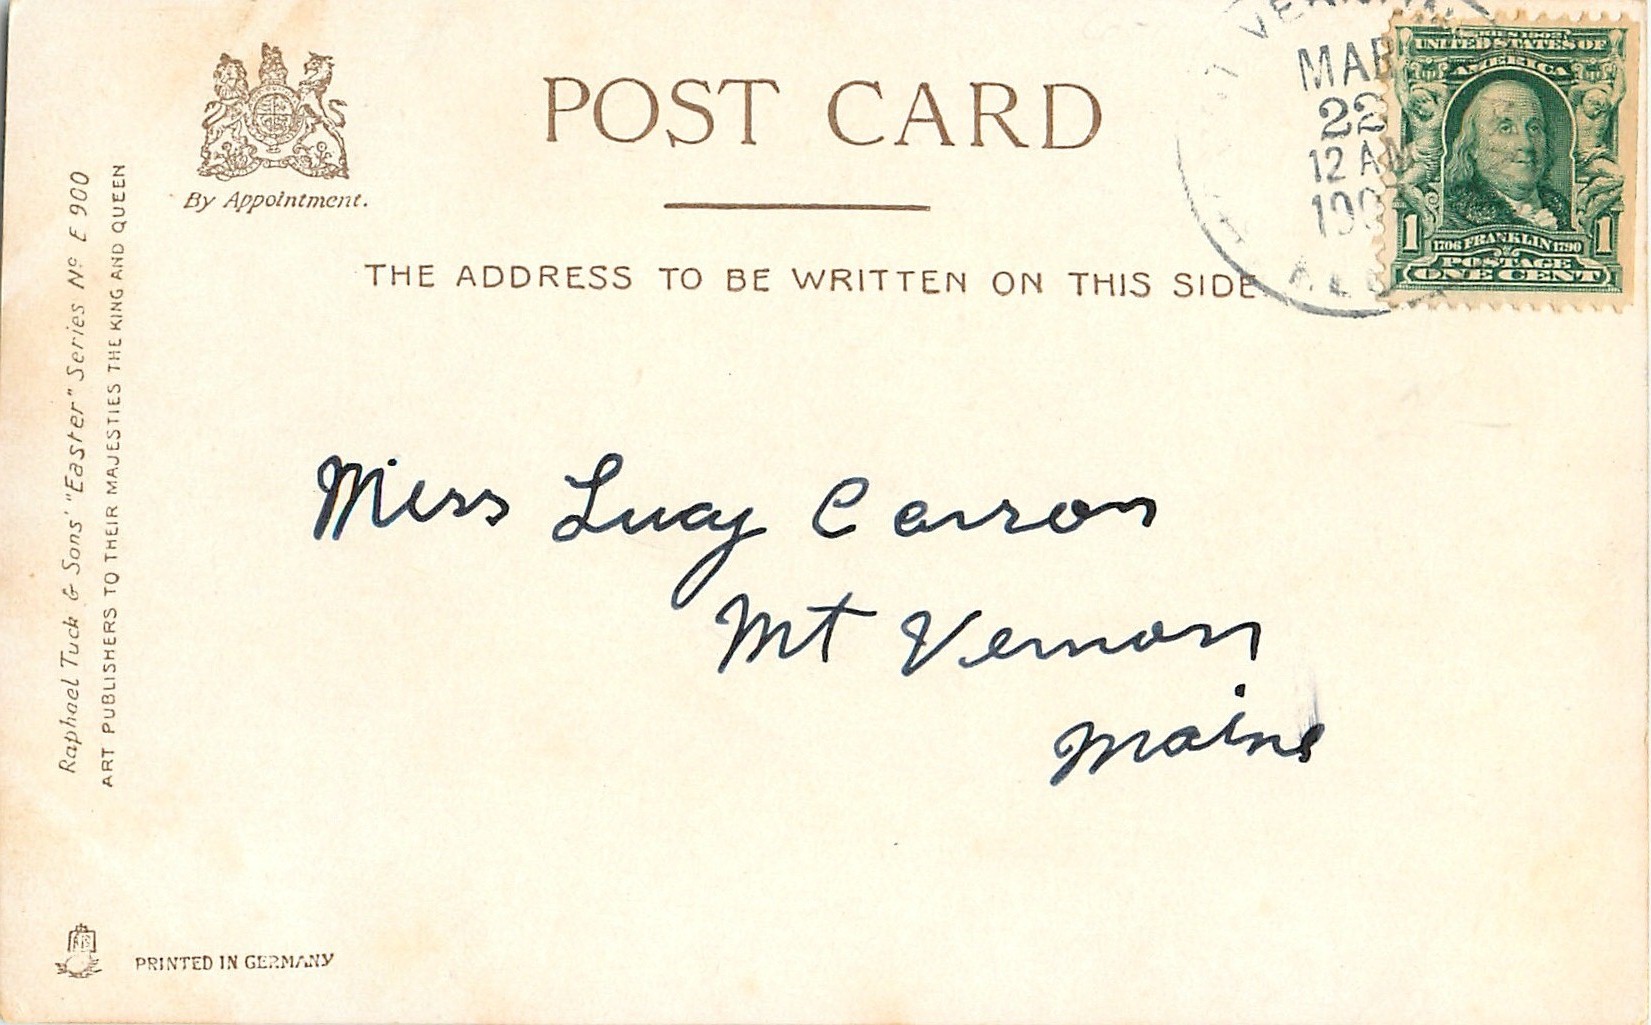 POST CARD
By Appointment.
THE ADDRESS TO BE WRITTEN ON THIS SIDE
Raphael Tuck & Sons' "Easter" Series Nº E 900
ART PUBLISHERS TO THEIR MAJESTIES THE KING AND QUEEN
MAR
22
12 AM
SERIES 1902
UNITED STATES OF
AMERICA
1 1706 FRANKLIN 1790 1
POSTAGE
ONE CENT
Miss Lucy Carson
Mt Vernon
Maine
PRINTED IN GERMANY